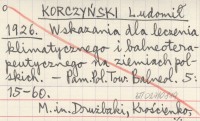 KORCZYŃSKI Ludomił
1926. Wskazania dla leczenia
klimatycznego i balneotera-
peutycznego na ziemiach pol-
skich. — Pam. Pol. Tow. Balneol. 5:
15-60.
M. in. Drużbaki, Krościenko,